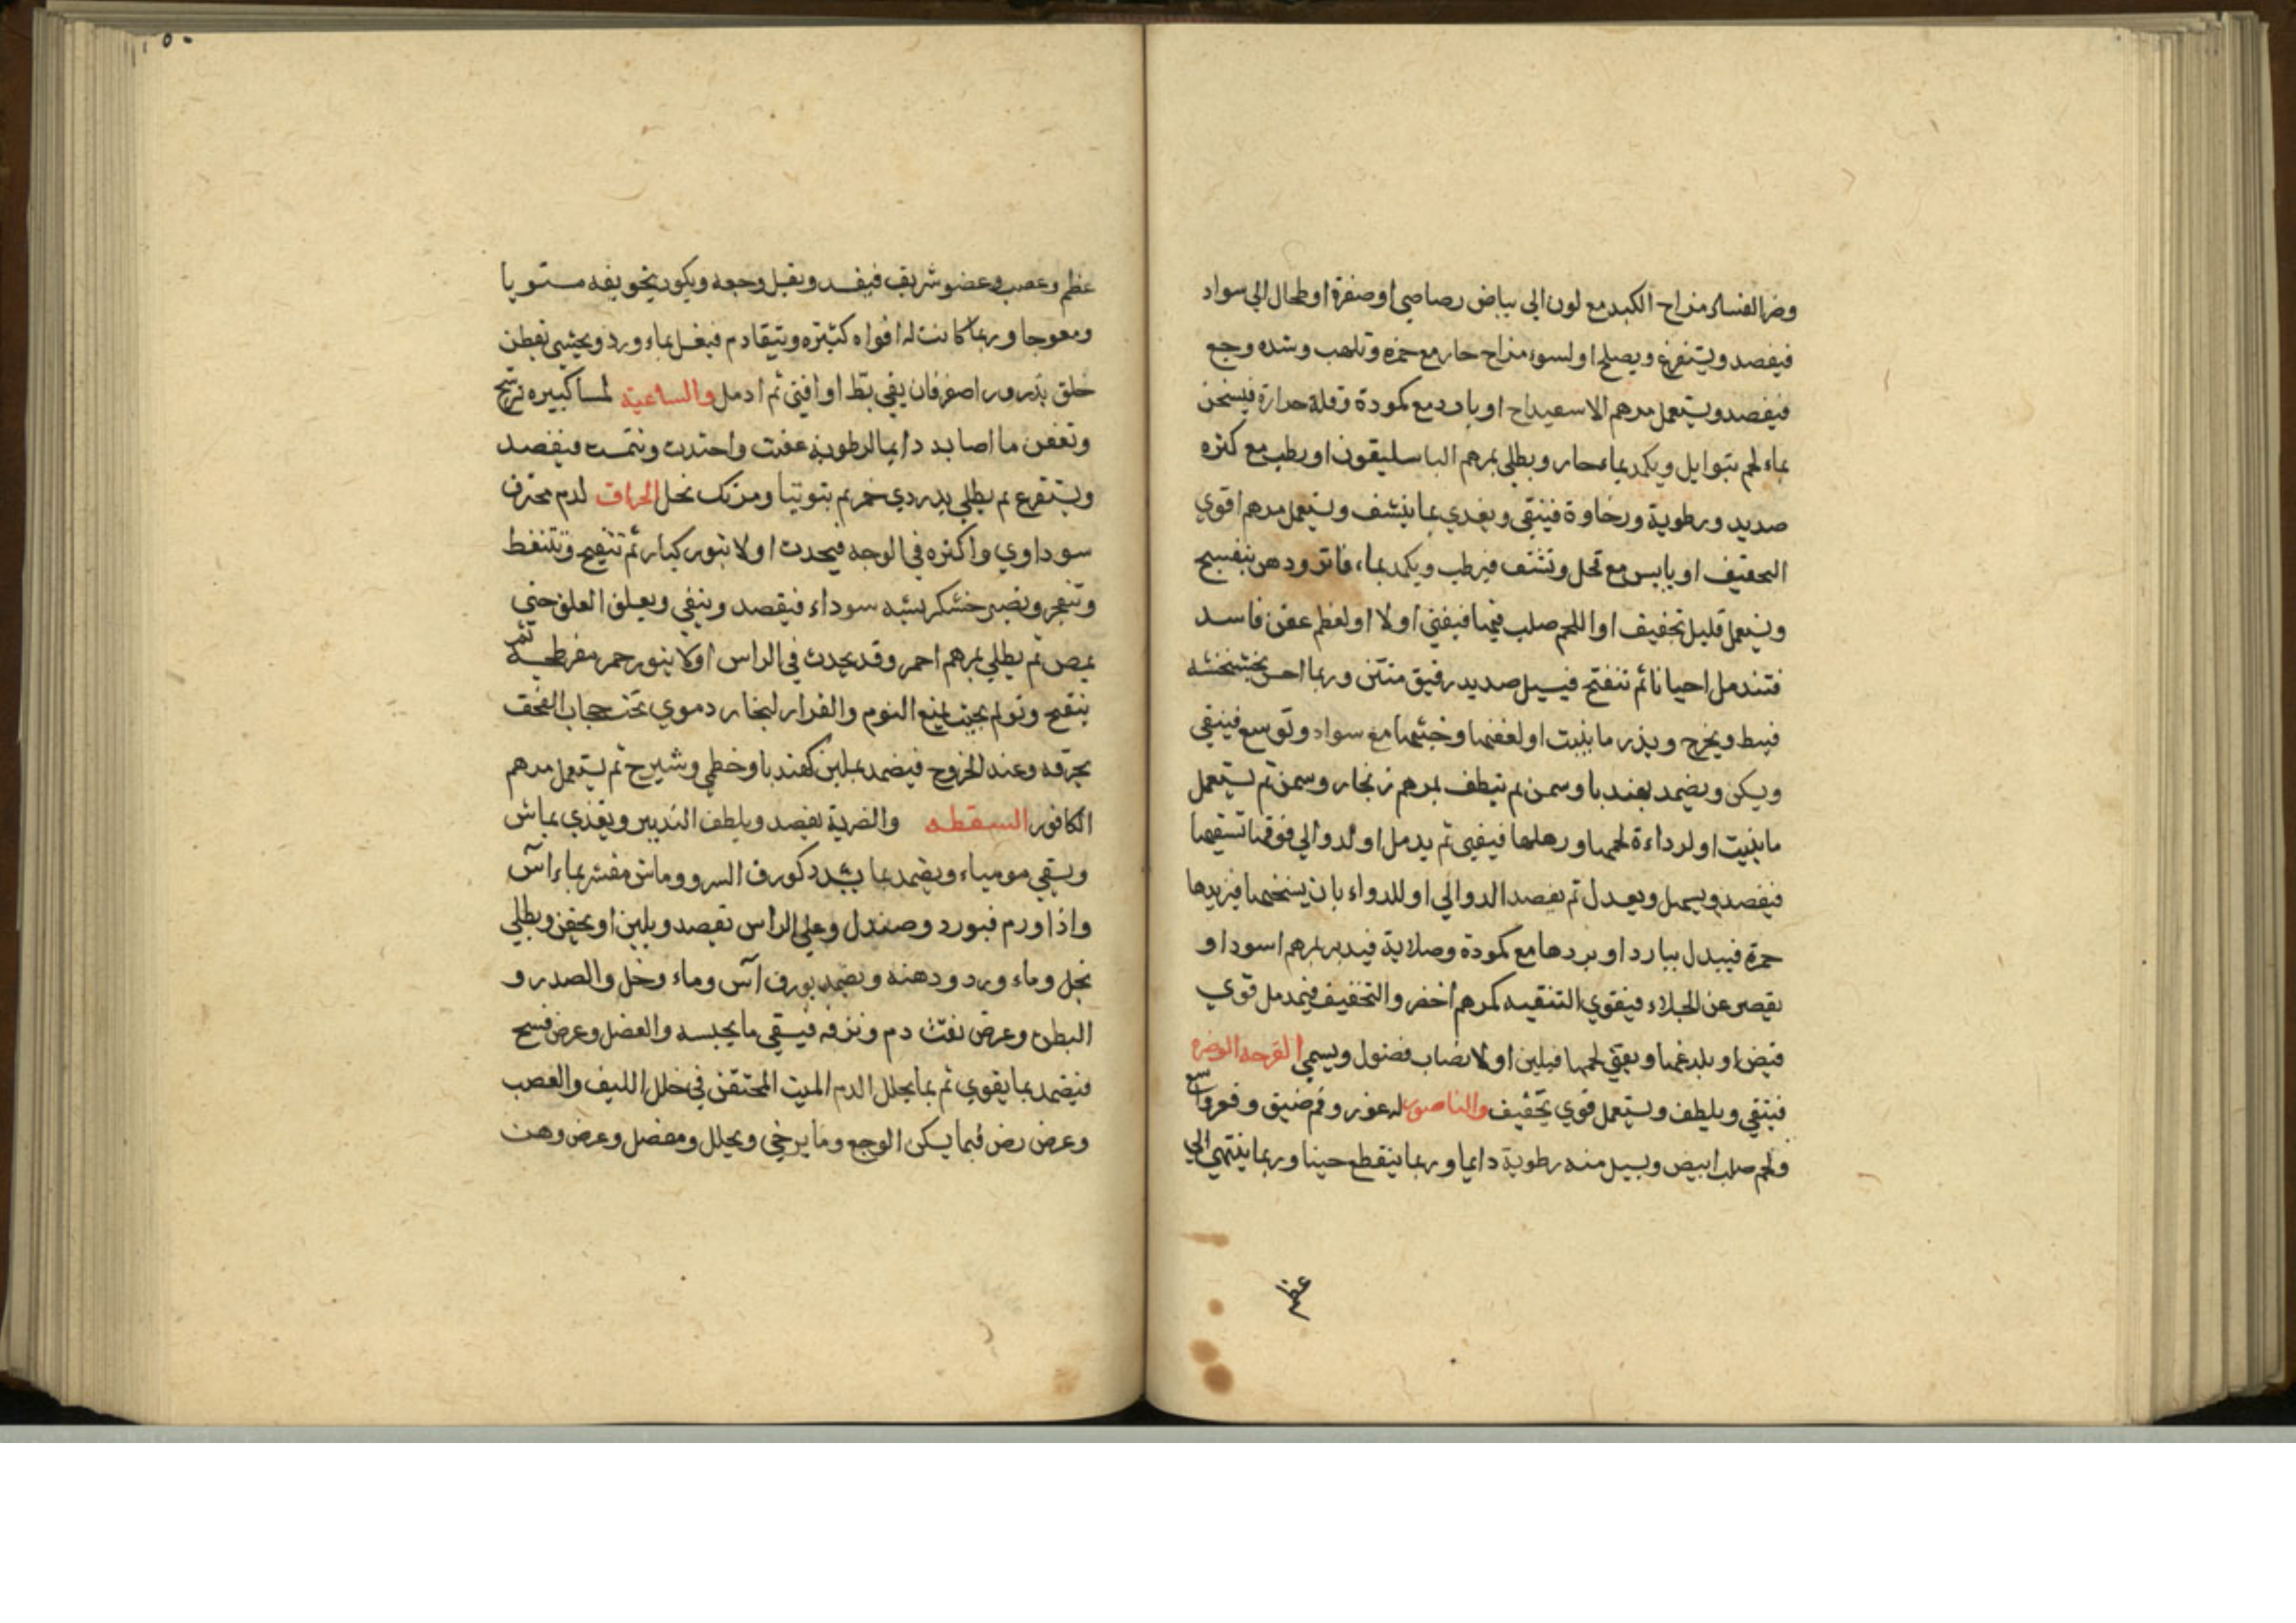 وضر الفساد مزاح الكبد مع لون الى بياض رصاصي او صفرة او طحال الي سواد
فيفصد ويستفرغ ويصلح او لسوء مزاح حار مع حمرة وتلهب وشده وجع
فيفصد ويستعمل مرهم الاسفيداح او بارد مع كمودة وقلة حرارة فيسخن
بماء لحم بتوابل ويكمد بماء حار ويطلي بمرهم الباسليقون او رطب مع كثره
صديد ورطوبة ورخاوة فينقي ويغدي بما ينشف ويستعمل مرهم اقوي
التجفيف او يابس مع قحل وتشنف فيرطب ويكمد بماء فاتر ودهن بنفسج
ويستعمل قليل تجفيف او اللحم صلب فيها فيفني اولا او لعظم عفن فاسد
فتندمل احيانا ثم تنفتح فيسيل صديد رقيق منتن وربما احس بخشخشه
فيبط ويخرج ويذر ما ينبت او لعفنها وخبثها مع سواد وتوسع فينقي
ويكن ويضمد بهندبا وسمن ثم ينظف بمرهم زنجار وسمن ثم يستعمل
ما ينبت او لرداءة لحمها ورهلها فيفني ثم يدمل او لدوالي فوقها تسقيها
فيفصد ويسهل ويعدل ثم يفصد الدوالي او للدواء بان يسخنها فيزيدها
حمرة فيبدل ببارد او يبردها مع كمودة وصلابة فيدبر بمرهم اسود او
يقصر عن الجلاء فيقوي التنقيه كمرهم اخضر والتجفيف فيمدمل قوي
قبض او يلدغها ويعقي لحمها فيلين او لانصباب فضول ويسمي القرحه الوضره
فينقي ويلطف ويستعمل قوي تجفيف والناصور له غور وفم ضيق وقعر واسع
ولحم صلب ابيض ويسيل منه رطوبة دايما وربما ينقطع حينا وربما ينتهي الي
عظم
عظم وعصب وعضو شريف فيفسد ويقبل وجعه ويكون تجويفه مستويا
ومعوجا وربما كانت له افواه كثيره ويتقادم فيغسل بماء ورد ويحشي بقطن
خلق بذرور اصفر فان يفي بط او افني ثم ادمل والساعيه لمساكبيره ترشح
وتعفن ما اصابه دايما لرطوبة عفنت واحتدت ونتنت فيفصد
ويستفرغ ثم يطلي بدردي خمر ثم بتوتيا ومرتك بخل الحراق لدم محترق
سوداوي واكثره في الوجه فيحدث اولا بثور كبار ثم تتقيح وتتنفط
وتنفجر وتصير خشكريشه سوداء فيفصد وينقي ويعلق العلق حتي
يمص ثم يطلي بمرهم احمر وقد يحدث في الراس اولا بثور حمر مفرطحه ثم
يتقيح وتولم بحيث يمنع النوم والقرار لبخار دموي تحت حجاب القحف
يحرقه وعند الخروج فيضمد بملين كهندبا وخطمي وشيرج ثم يستعمل مرهم
الكافور السقطه والضربة يفصد ويلطف التدبير ويغذي بماش
ويسقي مومياء ويضمد بما يشدد كورق السرو وماش مقشر بماء اس
واذا ورم فبورد وصندل وعلي الراس يفصد ويلين او يحقن ويطلي
بخل وماء ورد ودهنه ويضمد بورق آس وماء وخل والصدر و
البطن وعرض نفث دم ونزفه فيسقي ما يحبسه والعضل وعرض فسح
فيضمد بما يقوي ثم بما يحلل الدم الميت المحتقن في خلل الليف والعصب
وعرض رض فبما يسكن الوجع وما يرخي ويحلل ومفصل وعرض وهن